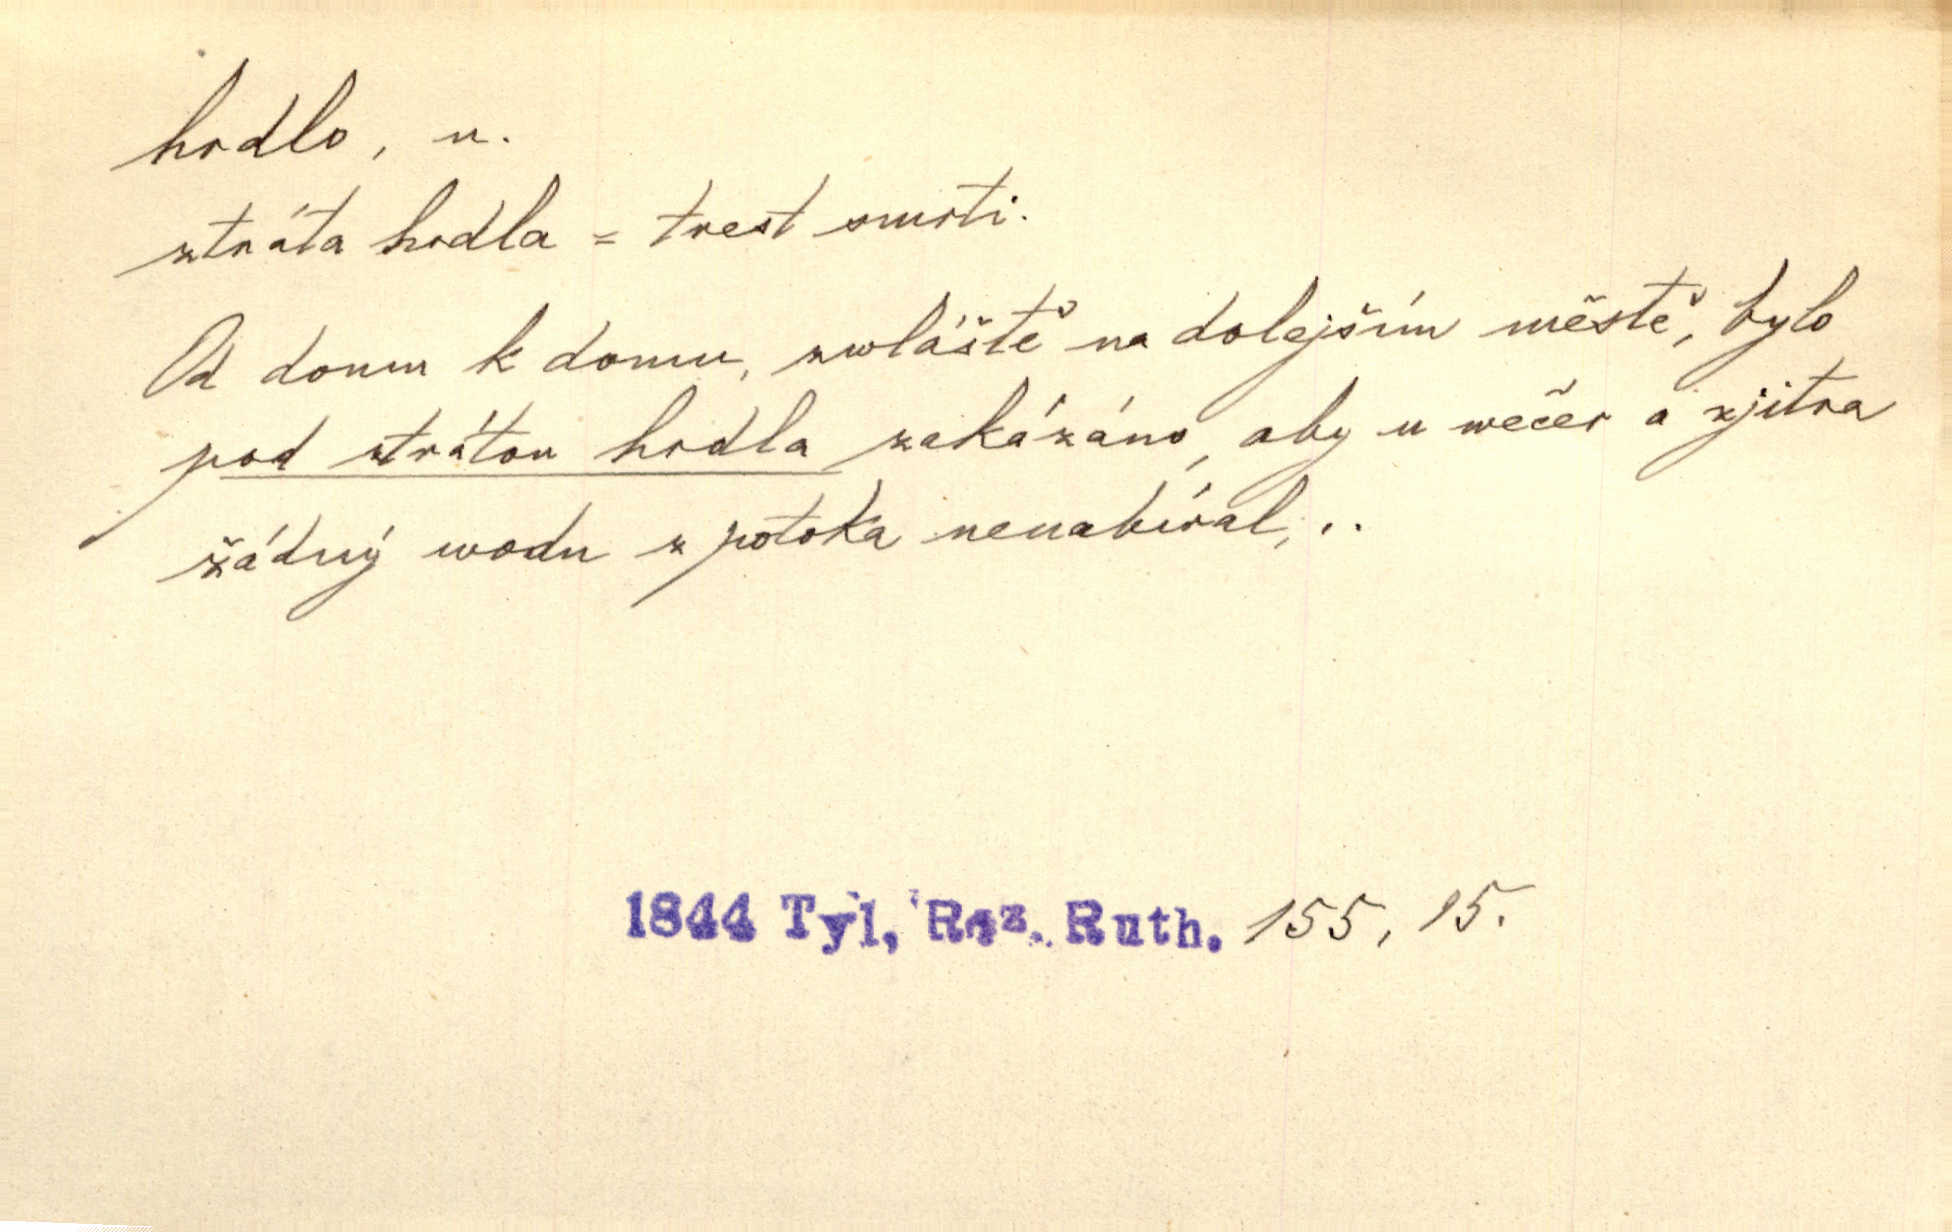 hrdlo, n.
ztráta hrdla = trest smrti.
Od domu k domu, zwláště na dolejším městě, bylo
pod ztrátou hrdla zakázáno, aby u wečer a zjitra
žádný wodu z potoka nenabíral, ..
1844 Tyl, Roz. Ruth. 155, 15.